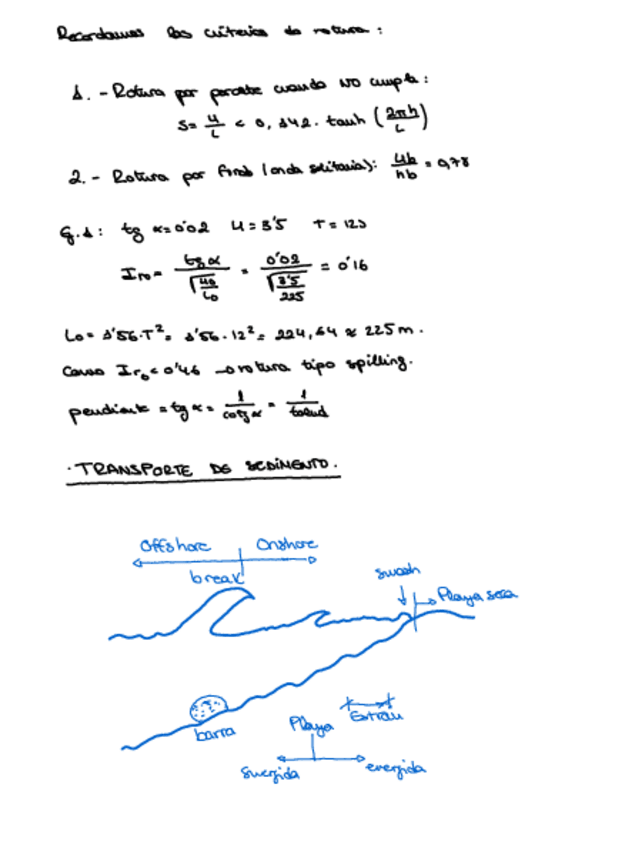 Recordamos los criterios de rotura:
1.- Rotura por peralte cuando NO cumpla:
S = H/L < 0,142 · tanh (2πh/L)
2.- Rotura por fondo (onda solitaria): Hb/hb = 0,78
Ej. 1: tg α = 0'02 H = 3'5 T = 12s
Iro = tg α / √(Ho/Lo) = 0'02 / √(3'5/225) = 0'16
Lo = 1'56·T² = 1'56·12² = 224,64 ≈ 225 m.
Como Iro < 0'46 → rotura tipo spilling.
pendiente = tg α = 1/cotg α = 1/talud
· TRANSPORTE DE SEDIMENTO.
Offshore Onshore
break
swash
Playa seca
barra
Playa
Estrán
sumergida emergida